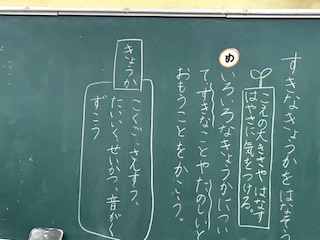 すきなきょうかをはなそう
こえの大きさやはなす
はやさに気をつける。
め
いろいろなきょうかについ
てすきなことやたのしいと
おもうことをかいう。
きょうか
こくご、さんすう、
たいいく、せいかつ、音がく
ずこう